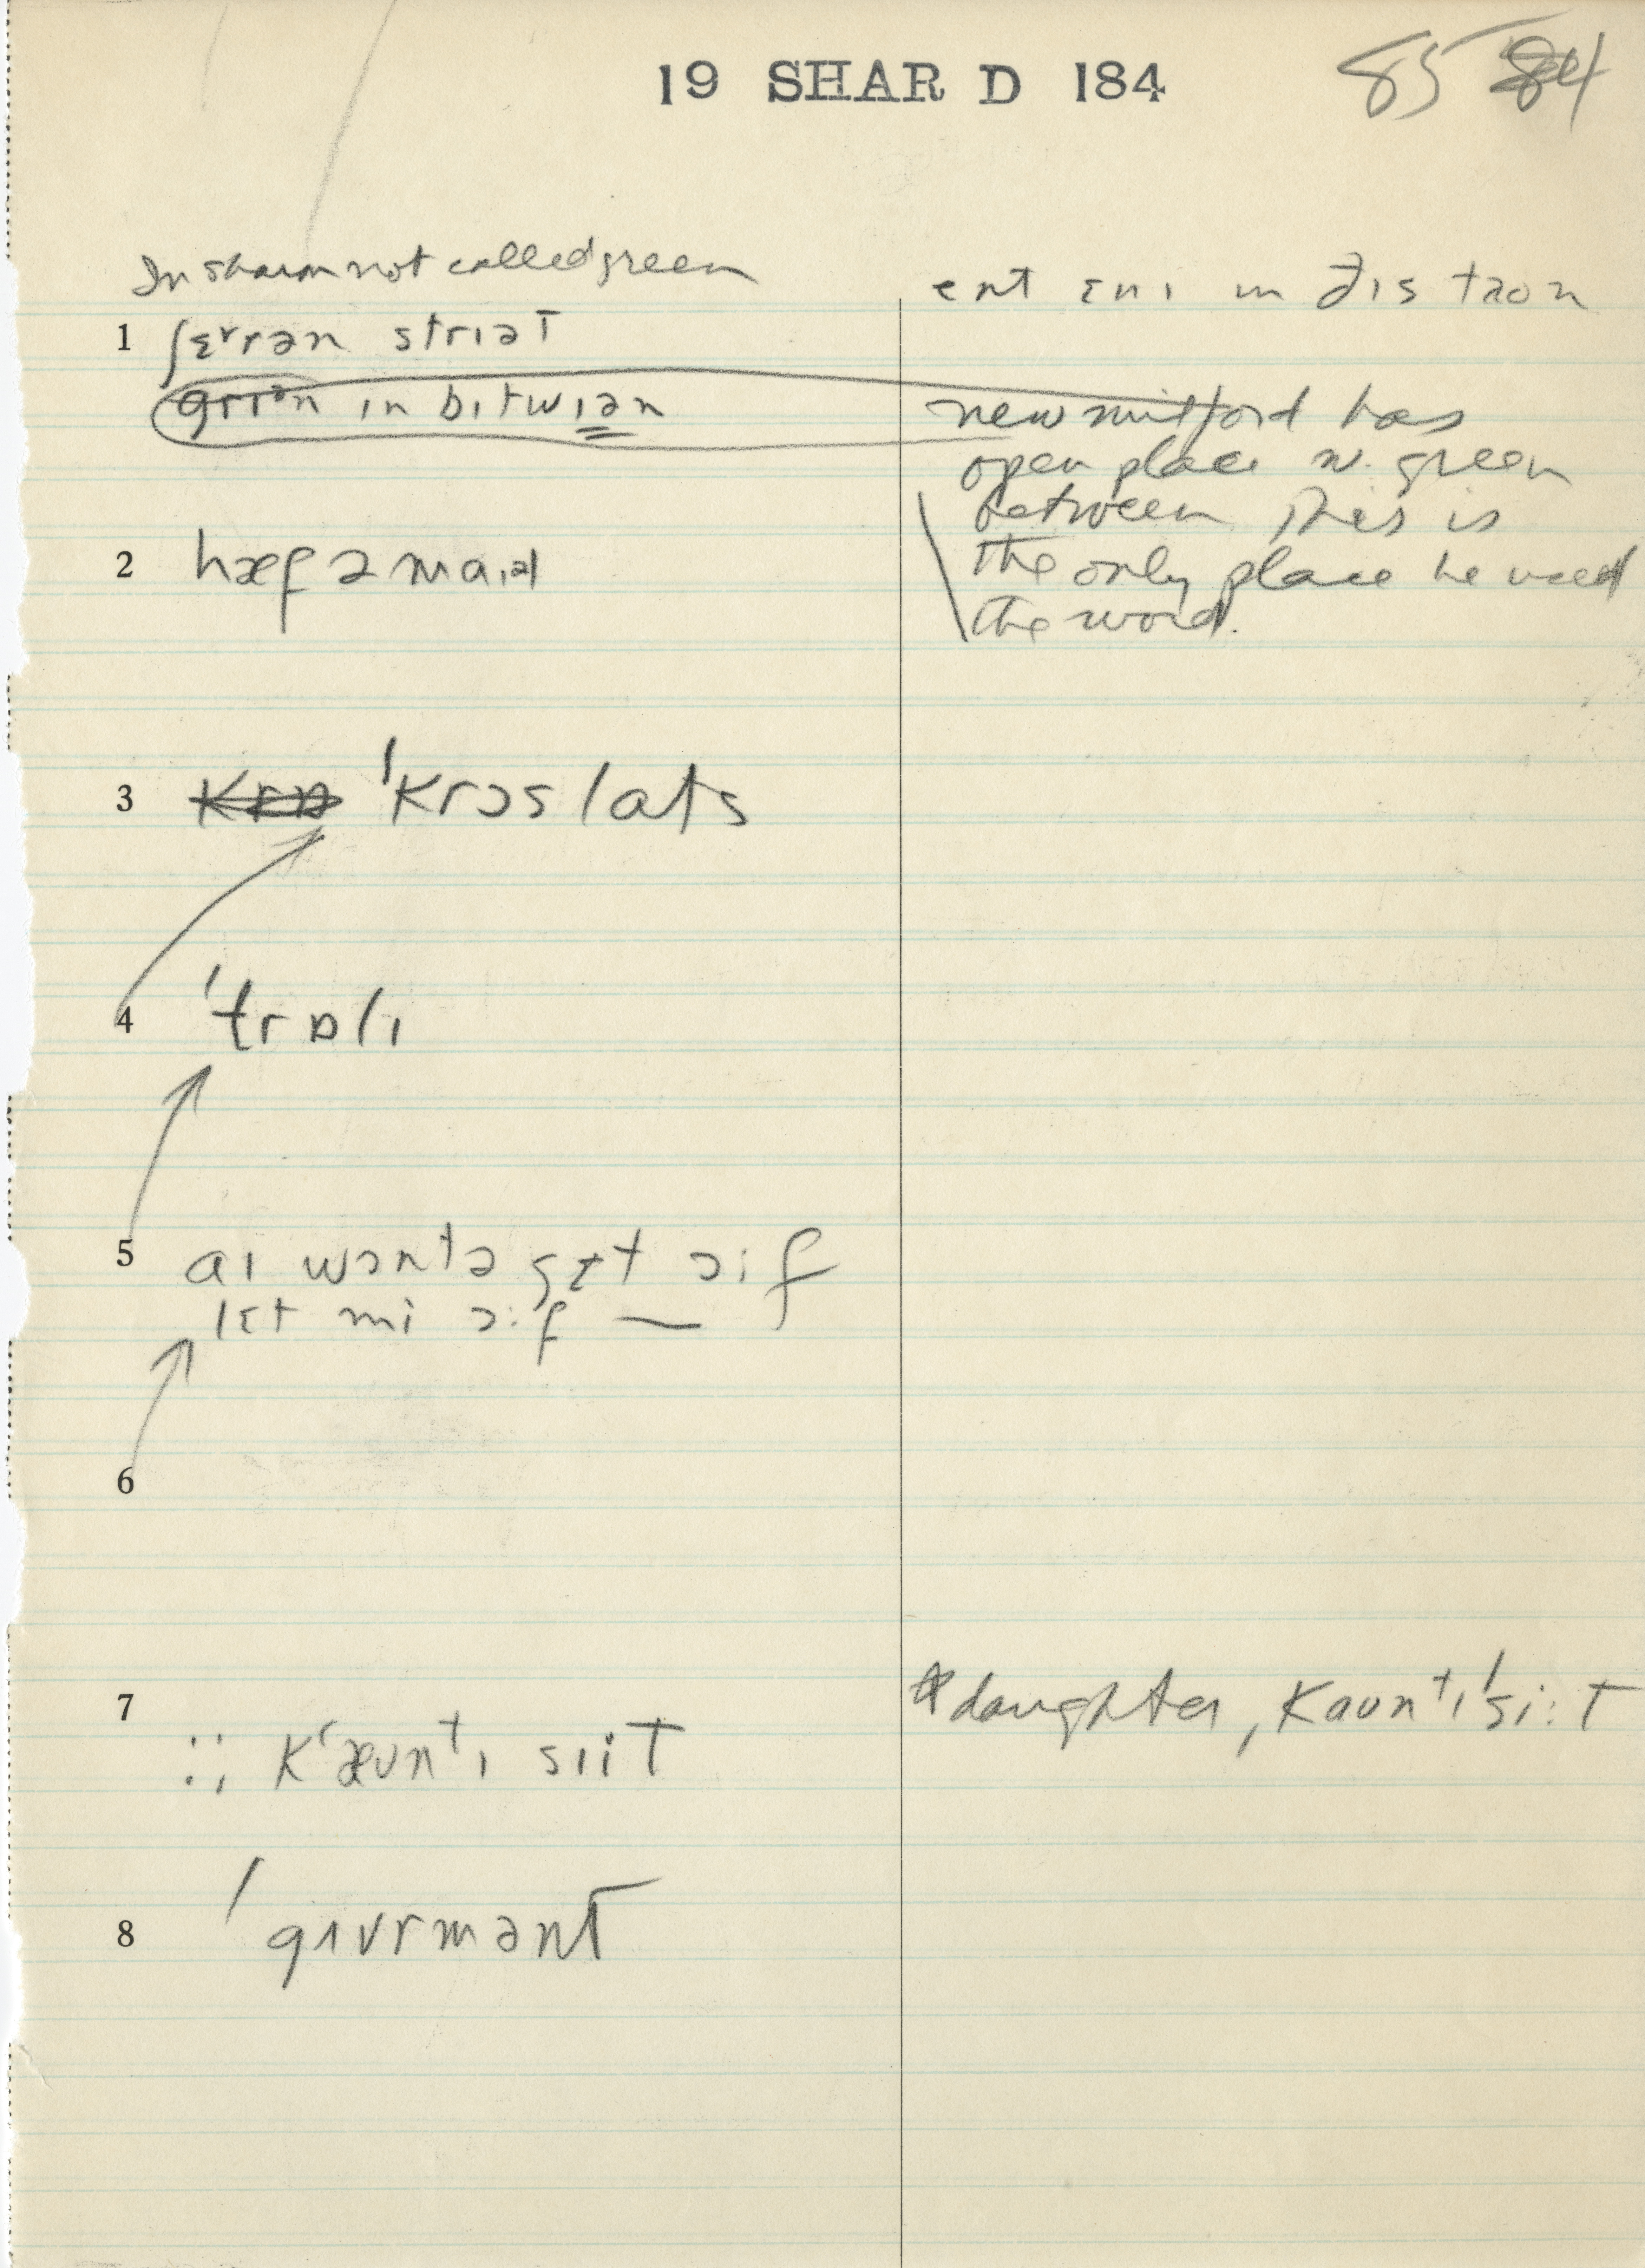 19 SHAR D 184
85 84
In Sharon not called green
ent ɛnɪ ɪn ðɪs taon
1 ʃɛrrən strɪət
grɪən ɪn bɪtwɪən
new milford has
open place w. green
between This is
the only place he used
the word.
2 hæf ə maɪəl
3 krɒ ˈkrɔs lats
4 ˈtrɒlɪ
5 aɪ wɔntə gɛt ɔːf
lɛt mi ɔːf —
6
7 daughter, kaʊntɪˈsiːt
:; kʻæʊntɪ sɪit
8 ˈgʌvrmənt